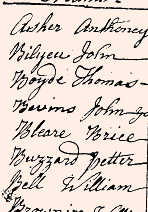 Asher Anthoney
Bilyeu John
Boyde Thomas
Burms John
Bleare Brice
Buzzard Petter
Bell William